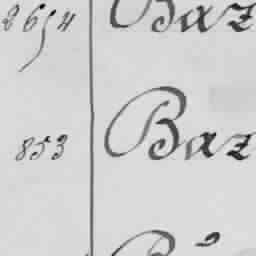 2654 Baz
853 Baz